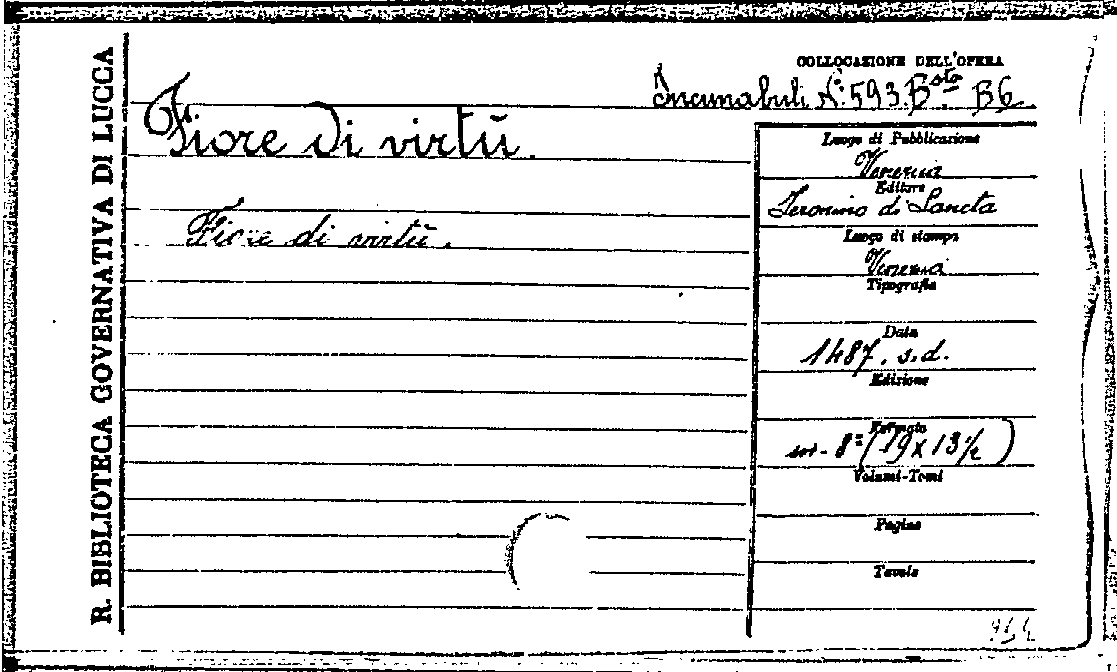 R. BIBLIOTECA GOVERNATIVA DI LUCCA
COLLOCAZIONE DELL'OPERA
Incunabuli N.° 593. Bsta B6
Fiore di virtù.
Fiore di virtù.
Luogo di Pubblicazione
Venezia
Editore
Jeronimo di Sancta
Luogo di stampa
Venezia
Tipografia
Data
1487. s.d.
Edizione
Formato
in-8° (19 x 13½)
Volumi-Tomi
Pagine
Tavole